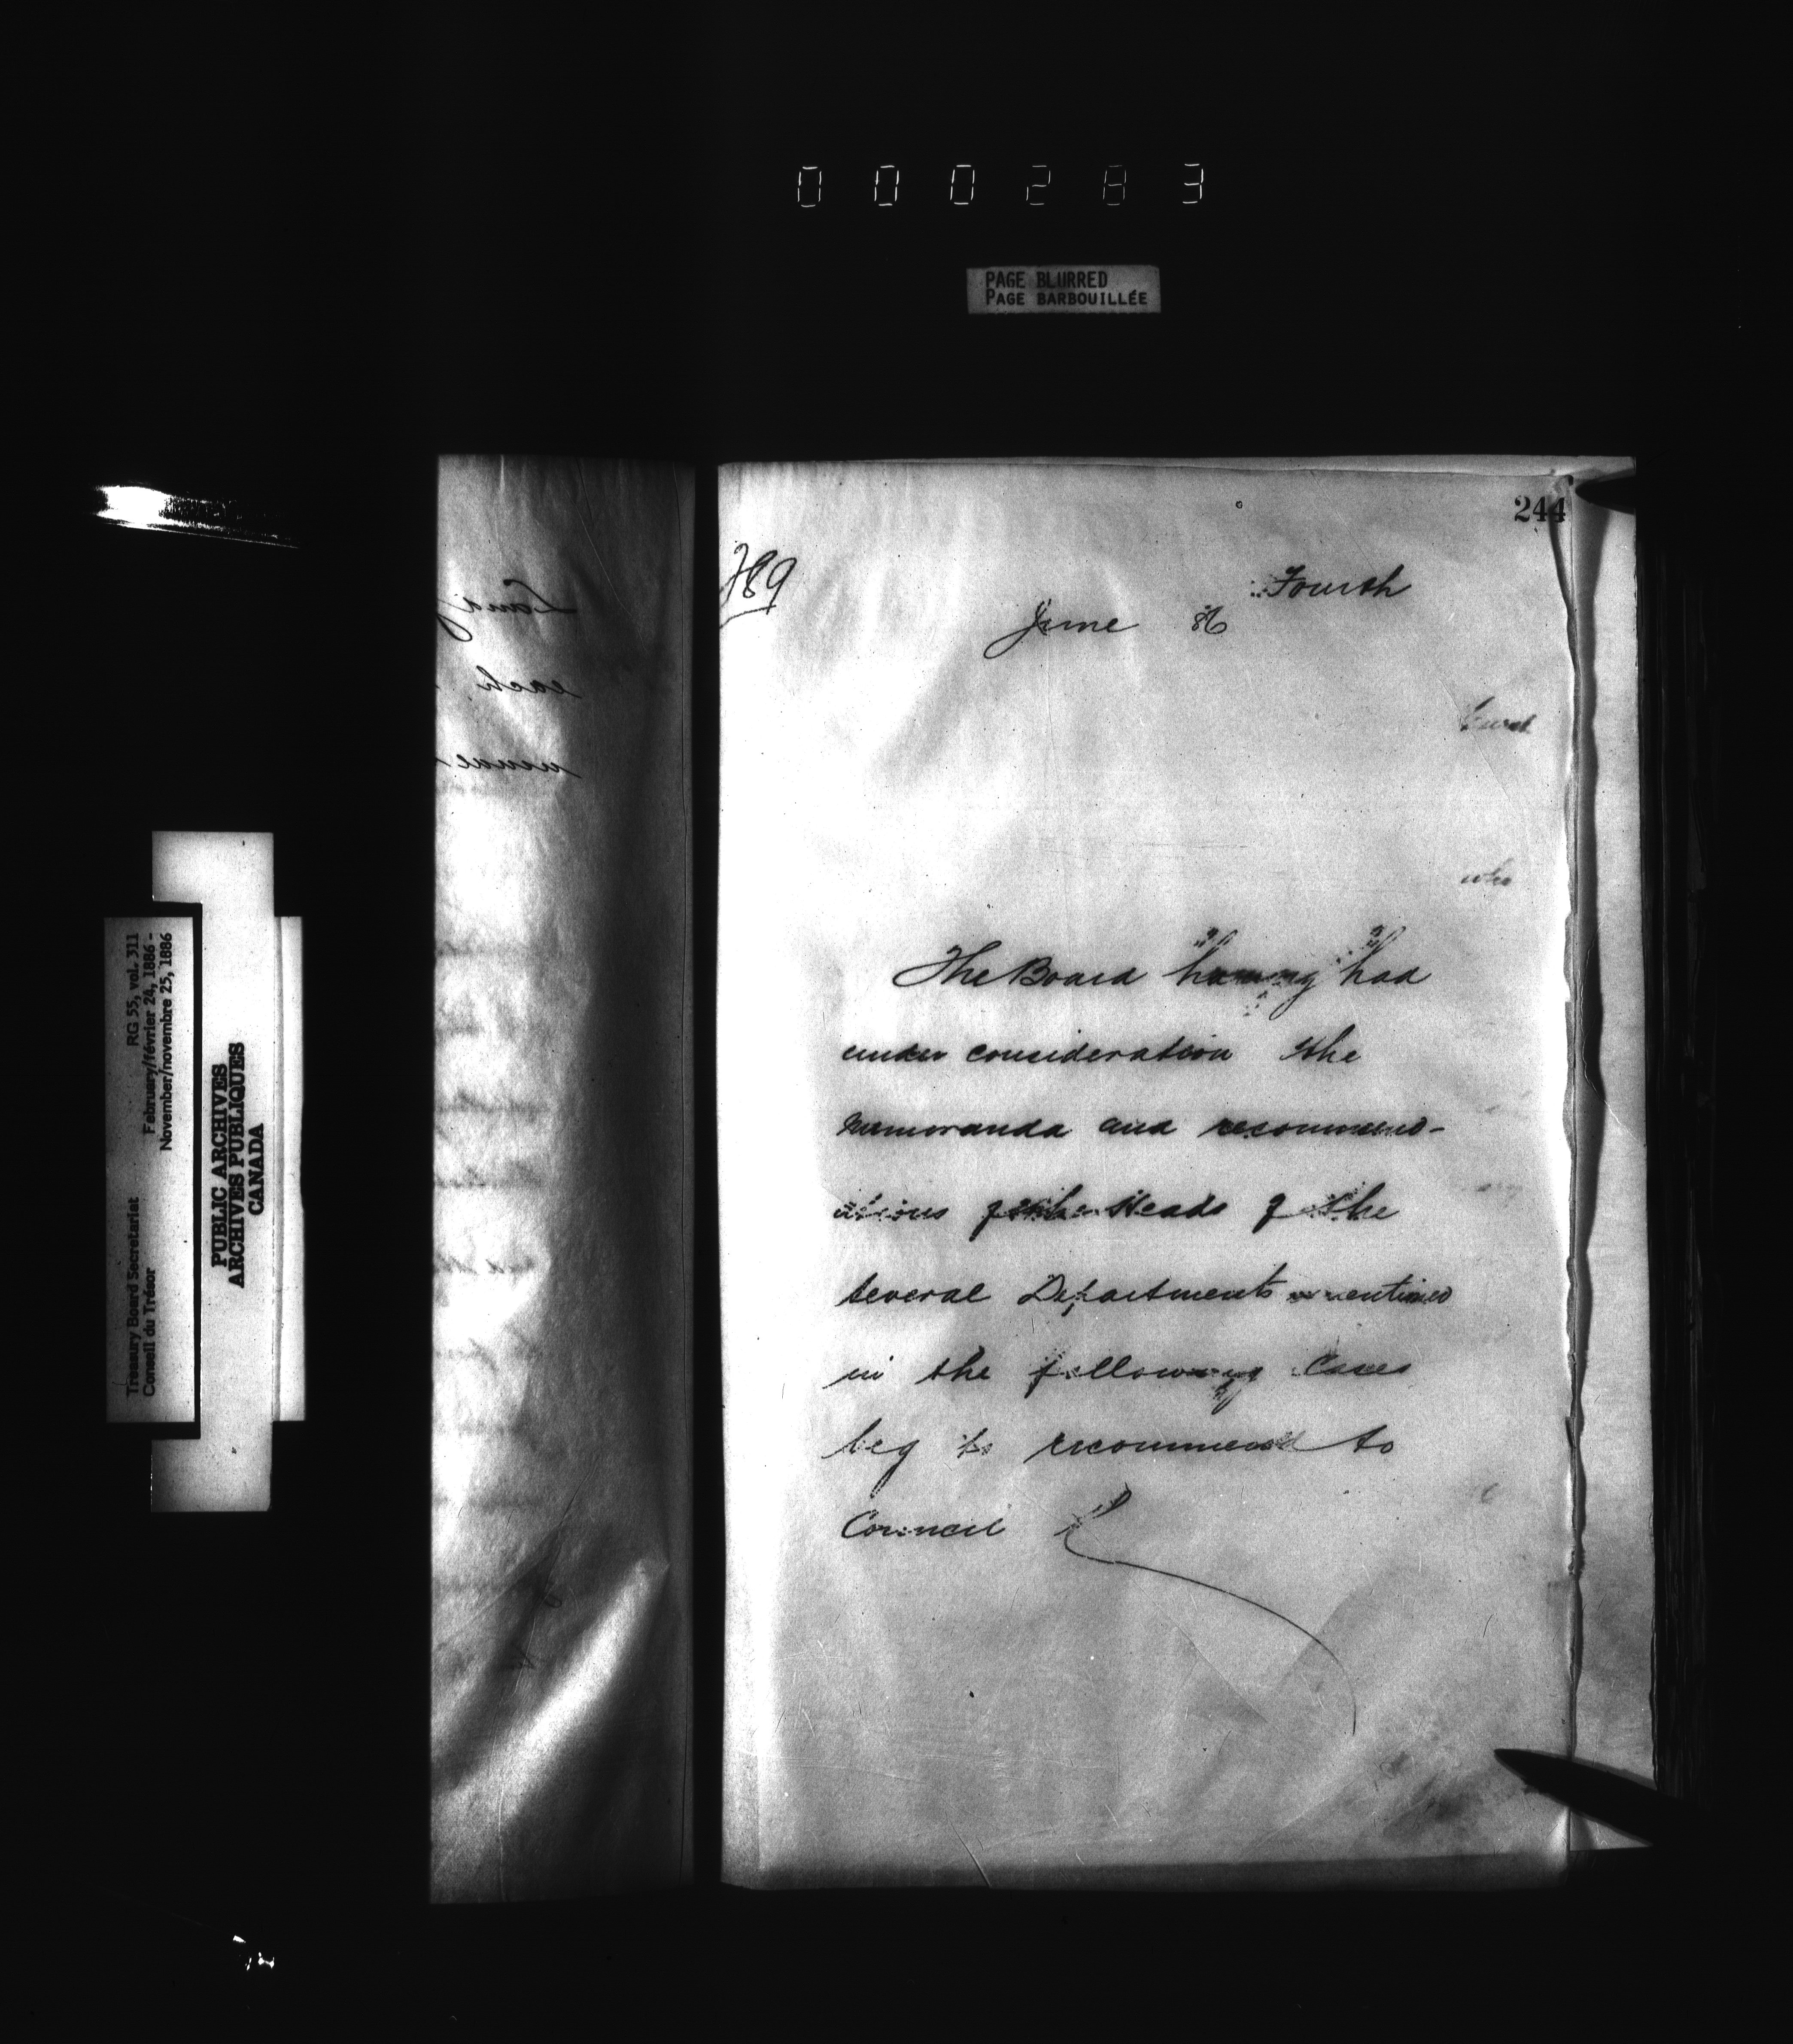 000283
PAGE BLURRED
PAGE BARBOUILLÉE
244
789
Fourth
June 86
who
The Board having had
under consideration the
memoranda and recommend-
ations of the Heads of the
several Departments mentioned
in the following Cases
beg to recommend to
Council
Treasury Board Secretariat RG 55, vol. 311
Conseil du Trésor February/février 24, 1886 -
November/novembre 25, 1886
PUBLIC ARCHIVES
ARCHIVES PUBLIQUES
CANADA